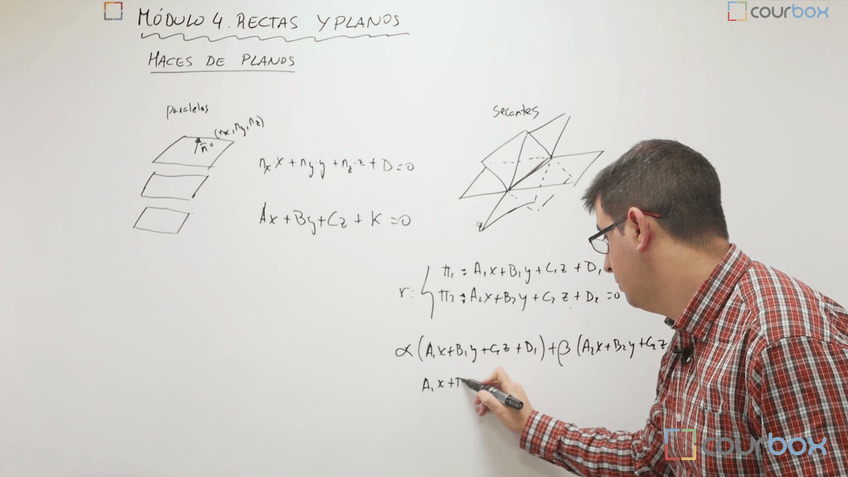 MÓDULO 4. RECTAS Y PLANOS
courbox
HACES DE PLANOS
paralelos
(nx, ny, nz)
n
nx·x + ny·y + nz·z + D = 0
Ax + By + Cz + K = 0
secantes
r: { π1 : A1x + B1y + C1z + D1
π2 : A2x + B2y + C2z + D2 = 0
α (A1x + B1y + C1z + D1) + β (A2x + B2y + C2z
A1x +
courbox